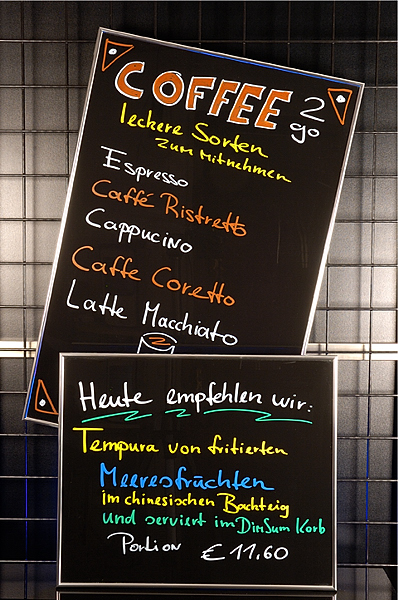 COFFEE 2 go
leckere Sorten
zum Mitnehmen
Espresso
Caffé Ristretto
Cappucino
Caffe Coretto
Latte Macchiato
Heute empfehlen wir:
Tempura von fritierten
Meeresfrüchten
im chinesischen Backteig
und serviert im DimSum Korb
Portion € 11,60